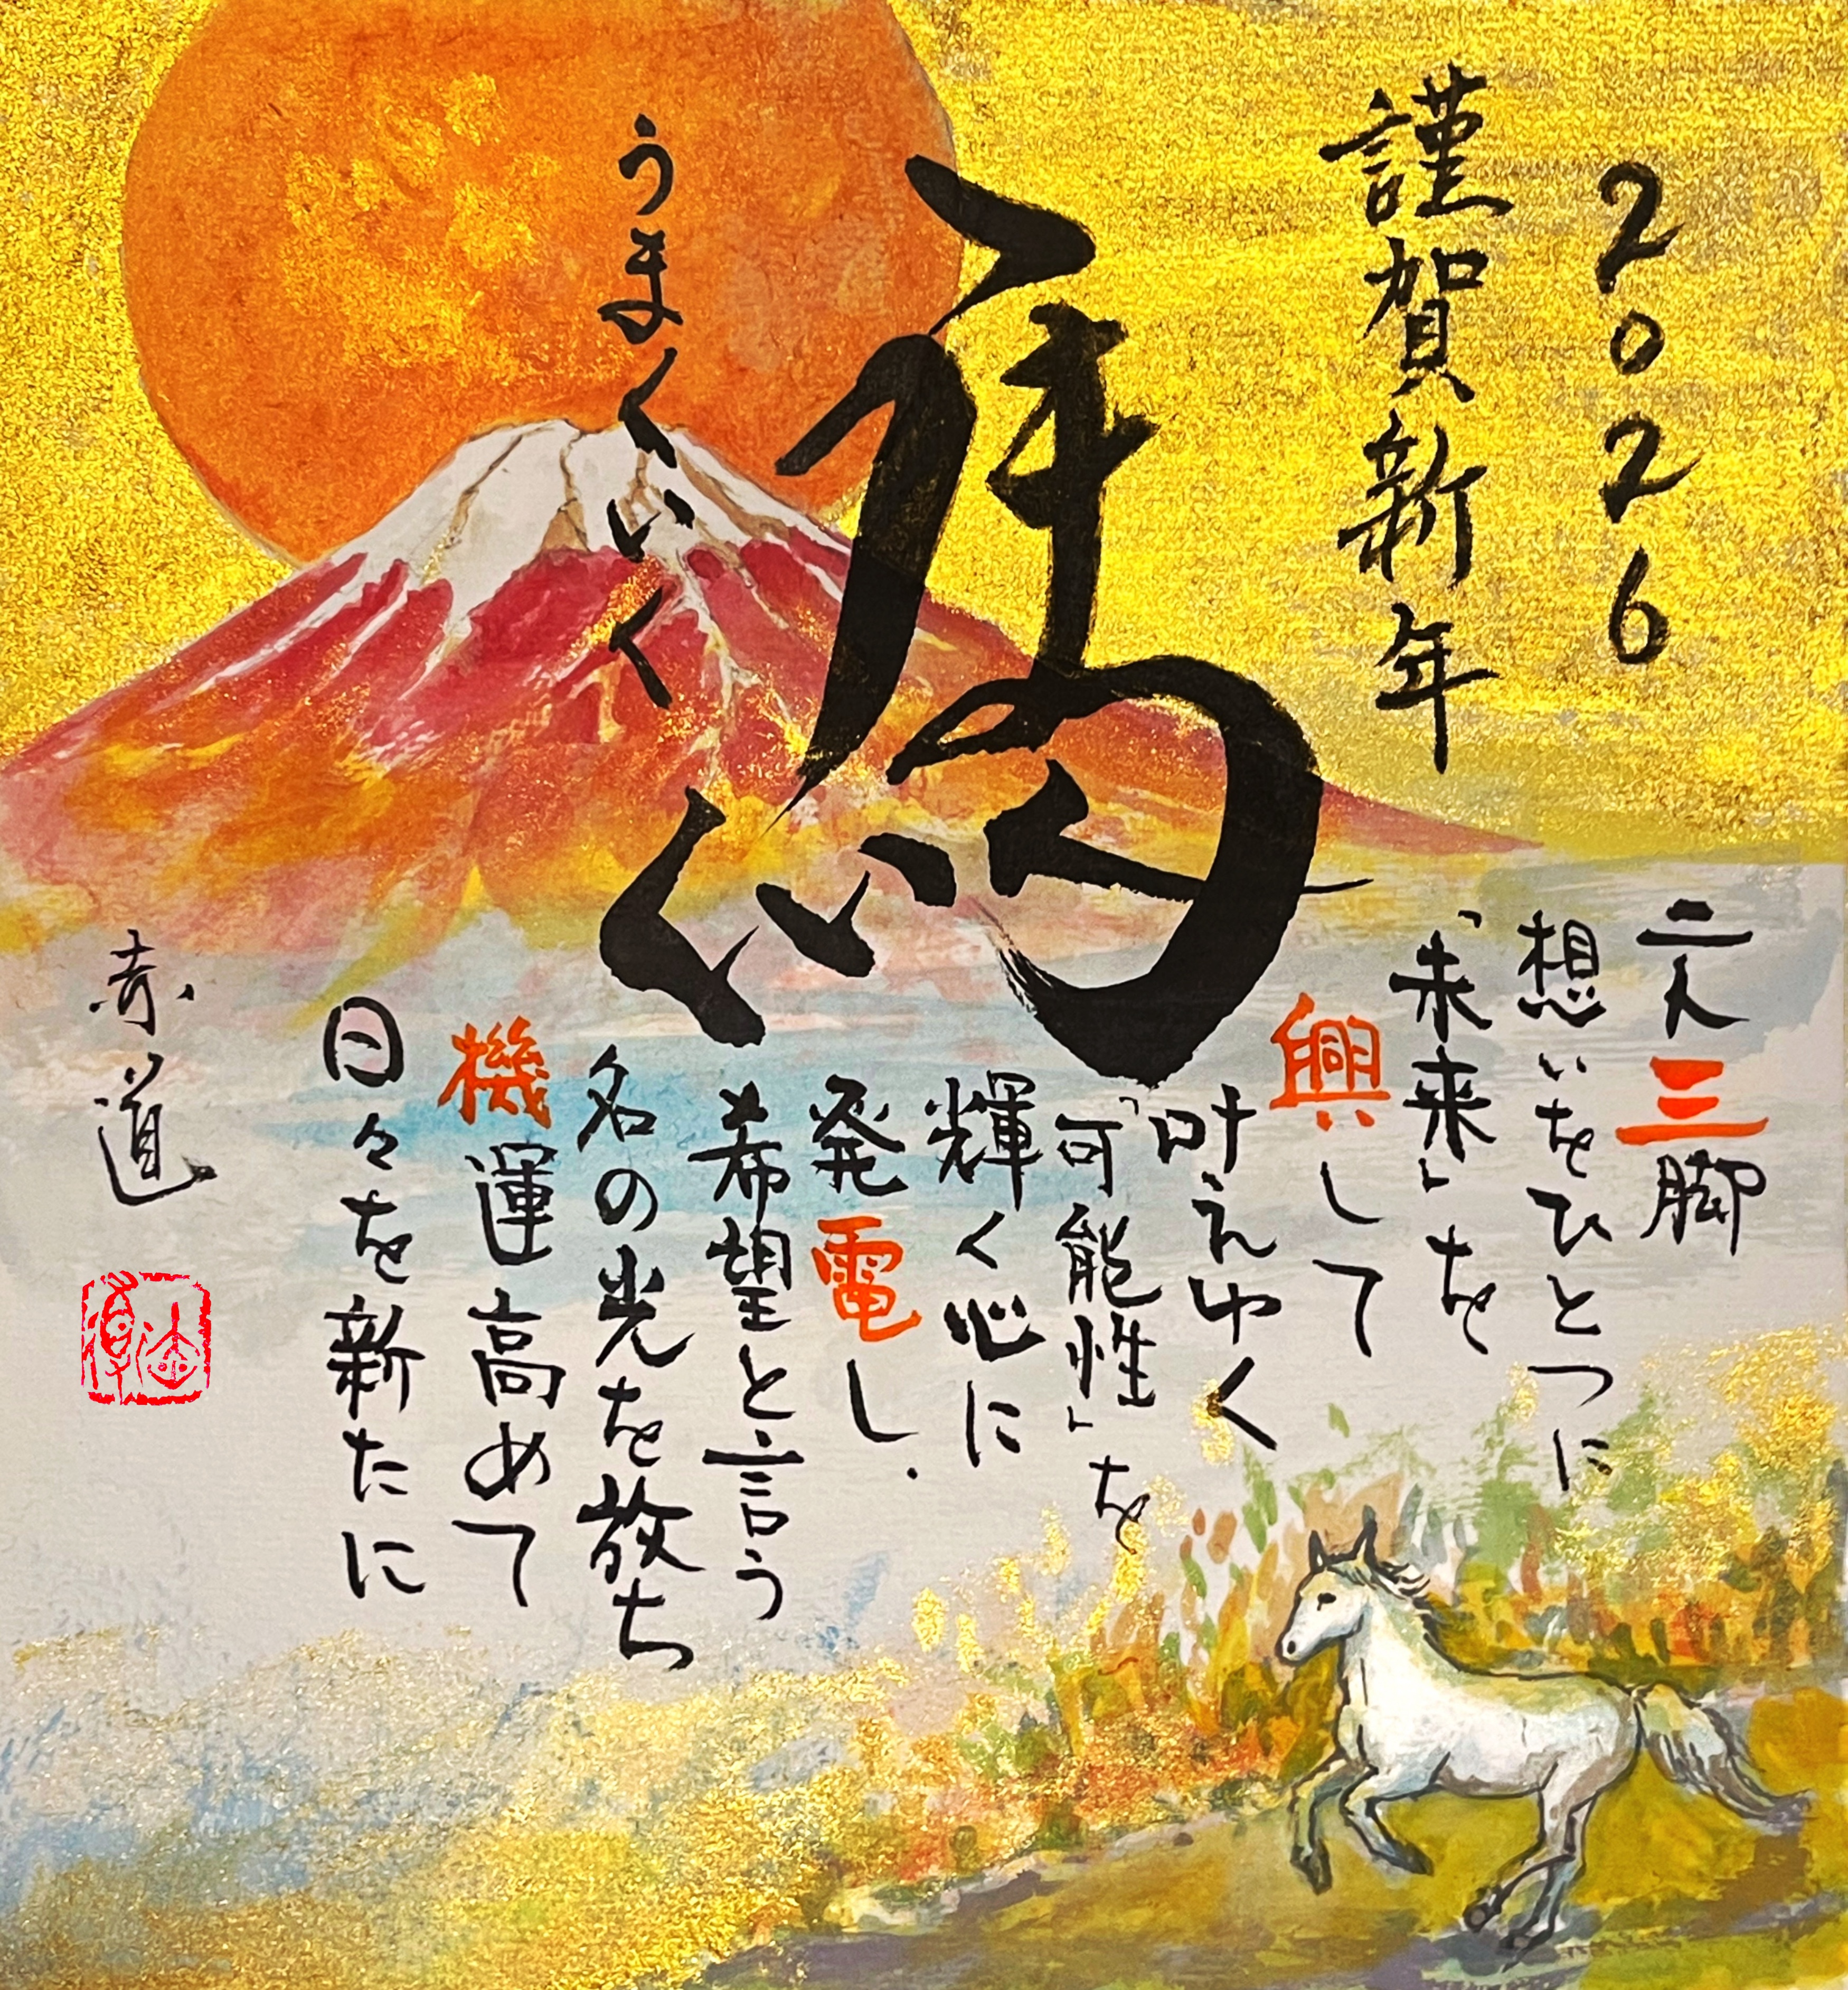 2026
謹賀新年
馬
うまくいく
二人三脚
想いをひとつに
「未来」を
興して
叶えゆく
「可能性」を
輝く心に
発電し.
希望と言う
名の光を放ち
機運高めて
日々を新たに
赤道